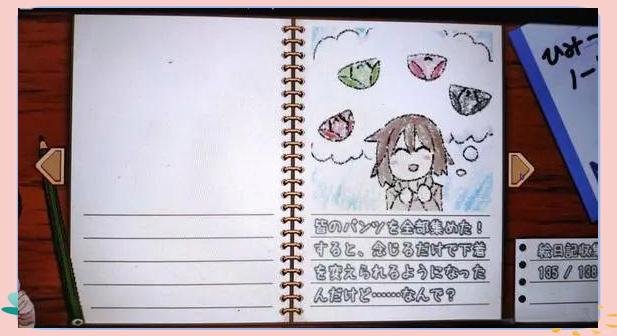 皆のパンツを全部集めた！
すると、念じるだけで下着
を変えられるようになった
んだけど……なんで？
ひみつ
ノー
絵日記収集
185 / 188